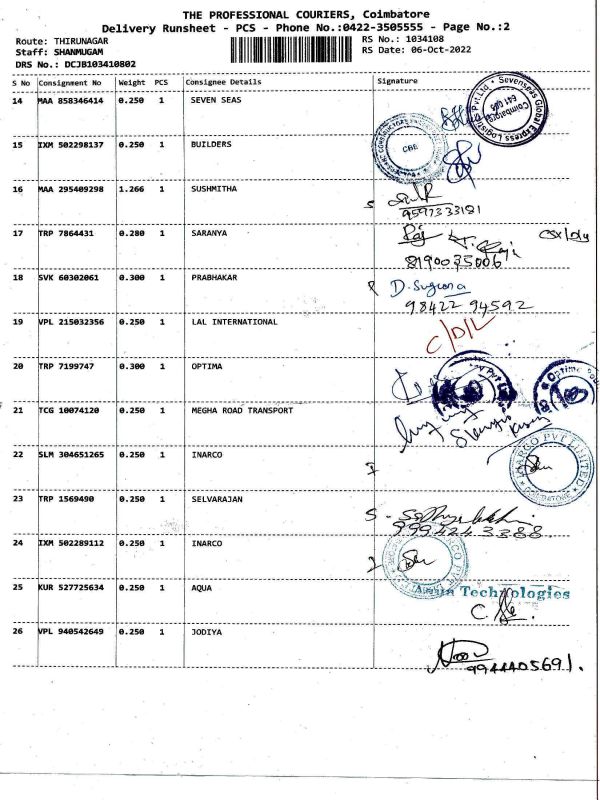 THE PROFESSIONAL COURIERS, Coimbatore
Delivery Runsheet - PCS - Phone No.:0422-3505555 - Page No.:2
Route: THIRUNAGAR RS No.: 1034108
Staff: SHANMUGAM RS Date: 06-Oct-2022
DRS No.: DCJB103410802
S No Consignment No Weight PCS Consignee Details Signature
14 MAA 858346414 0.250 1 SEVEN SEAS
Sevenseas Global Express Logistics Pvt.Ltd
Coimbatore
15 IXM 502298137 0.250 1 BUILDERS
CBE
16 MAA 295409298 1.266 1 SUSHMITHA
S
9597333181
17 TRP 7864431 0.280 1 SARANYA
8190035006
18 SVK 60302061 0.300 1 PRABHAKAR
D. Suguna
98422 94592
19 VPL 215032356 0.250 1 LAL INTERNATIONAL
C/D/L
20 TRP 7199747 0.300 1 OPTIMA
21 TCG 10074120 0.250 1 MEGHA ROAD TRANSPORT
22 SLM 304651265 0.250 1 INARCO
INARCO PVT LIMITED
COIMBATORE
23 TRP 1569490 0.250 1 SELVARAJAN
9994243388
24 IXM 502289112 0.250 1 INARCO
25 KUR 527725634 0.250 1 AQUA
Aqua Technologies
26 VPL 940542649 0.250 1 JODIYA
9944405691.